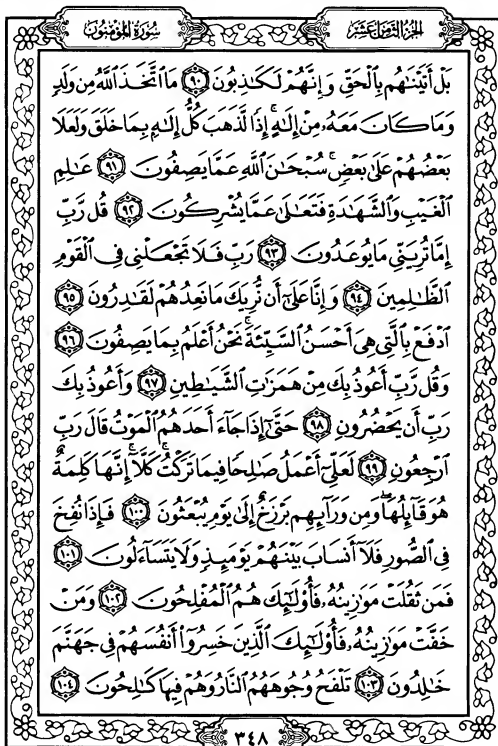 الجزء الثامن عشر
سورة المؤمنون
بَلْ أَتَيْنَٰهُم بِٱلْحَقِّ وَإِنَّهُمْ لَكَٰذِبُونَ ٩٠ مَا ٱتَّخَذَ ٱللَّهُ مِن وَلَدٍ
وَمَا كَانَ مَعَهُۥ مِنْ إِلَٰهٍ ۚ إِذًا لَّذَهَبَ كُلُّ إِلَٰهٍۭ بِمَا خَلَقَ وَلَعَلَا
بَعْضُهُمْ عَلَىٰ بَعْضٍ ۚ سُبْحَٰنَ ٱللَّهِ عَمَّا يَصِفُونَ ٩١ عَٰلِمِ
ٱلْغَيْبِ وَٱلشَّهَٰدَةِ فَتَعَٰلَىٰ عَمَّا يُشْرِكُونَ ٩٢ قُل رَّبِّ
إِمَّا تُرِيَنِّي مَا يُوعَدُونَ ٩٣ رَبِّ فَلَا تَجْعَلْنِي فِي ٱلْقَوْمِ
ٱلظَّٰلِمِينَ ٩٤ وَإِنَّا عَلَىٰٓ أَن نُّرِيَكَ مَا نَعِدُهُمْ لَقَٰدِرُونَ ٩٥
ٱدْفَعْ بِٱلَّتِي هِيَ أَحْسَنُ ٱلسَّيِّئَةَ ۚ نَحْنُ أَعْلَمُ بِمَا يَصِفُونَ ٩٦
وَقُل رَّبِّ أَعُوذُ بِكَ مِنْ هَمَزَٰتِ ٱلشَّيَٰطِينِ ٩٧ وَأَعُوذُ بِكَ
رَبِّ أَن يَحْضُرُونِ ٩٨ حَتَّىٰٓ إِذَا جَآءَ أَحَدَهُمُ ٱلْمَوْتُ قَالَ رَبِّ
ٱرْجِعُونِ ٩٩ لَعَلِّيٓ أَعْمَلُ صَٰلِحًا فِيمَا تَرَكْتُ ۚ كَلَّآ ۚ إِنَّهَا كَلِمَةٌ
هُوَ قَآئِلُهَا ۖ وَمِن وَرَآئِهِم بَرْزَخٌ إِلَىٰ يَوْمِ يُبْعَثُونَ ١٠٠ فَإِذَا نُفِخَ
فِي ٱلصُّورِ فَلَآ أَنسَابَ بَيْنَهُمْ يَوْمَئِذٍ وَلَا يَتَسَآءَلُونَ ١٠١
فَمَن ثَقُلَتْ مَوَٰزِينُهُۥ فَأُو۟لَٰٓئِكَ هُمُ ٱلْمُفْلِحُونَ ١٠٢ وَمَنْ
خَفَّتْ مَوَٰزِينُهُۥ فَأُو۟لَٰٓئِكَ ٱلَّذِينَ خَسِرُوٓا۟ أَنفُسَهُمْ فِي جَهَنَّمَ
خَٰلِدُونَ ١٠٣ تَلْفَحُ وُجُوهَهُمُ ٱلنَّارُ وَهُمْ فِيهَا كَٰلِحُونَ ١٠٤
٣٤٨